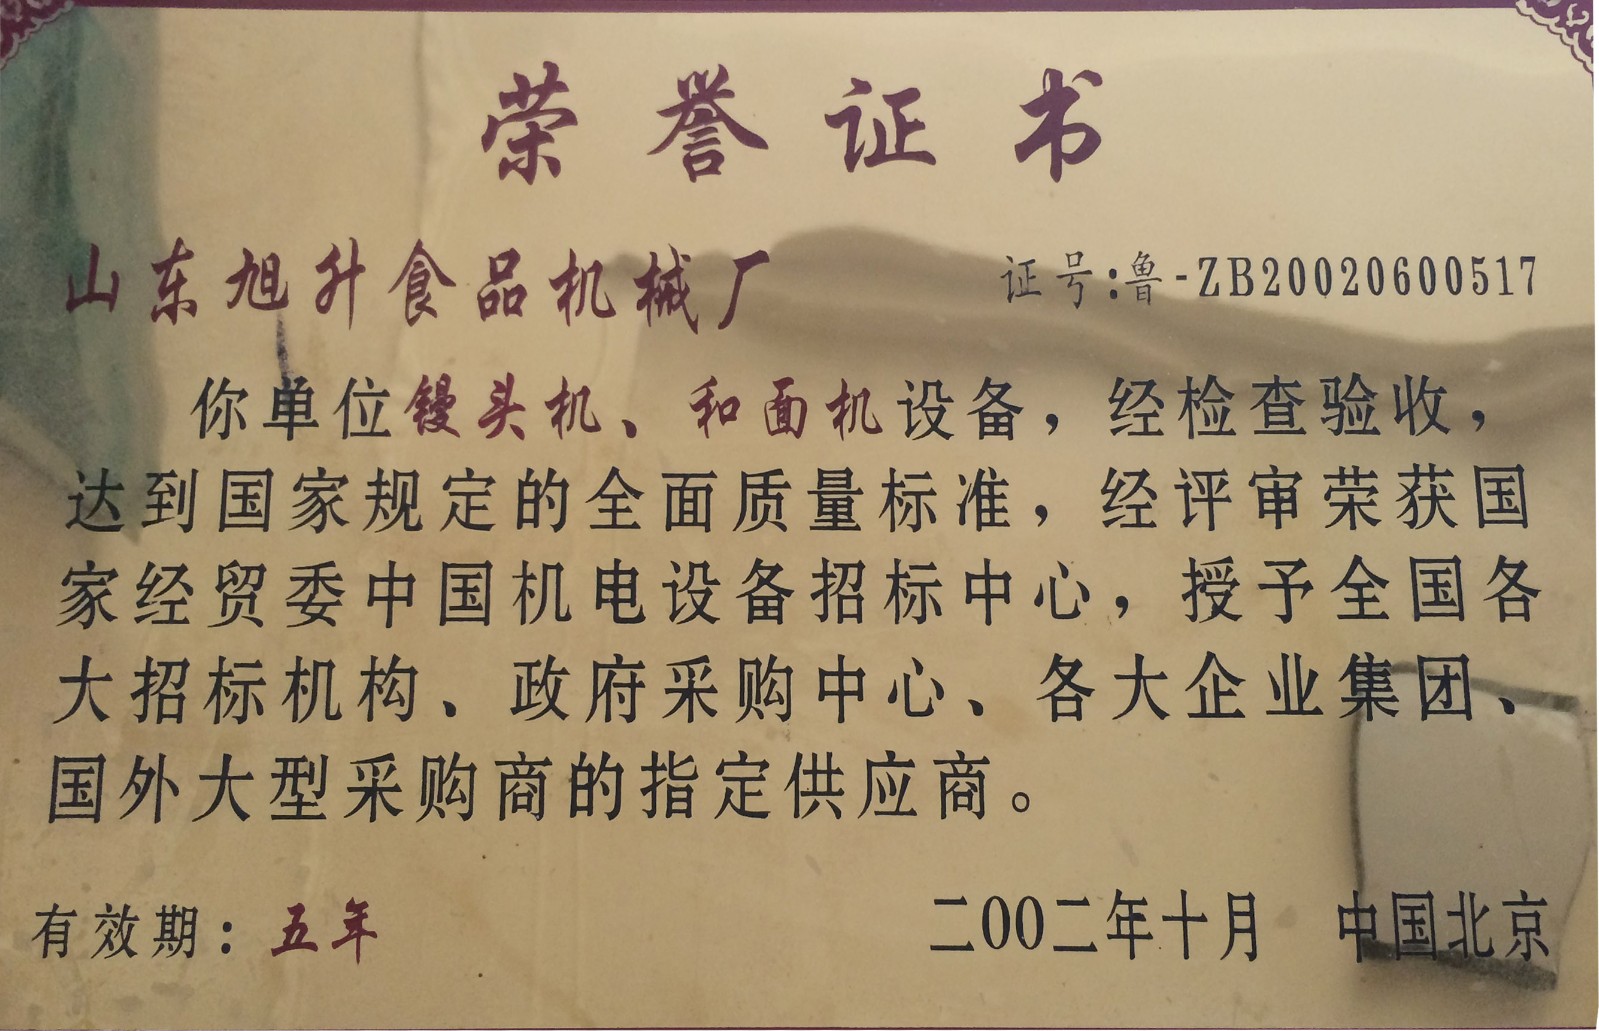 荣誉证书
山东旭升食品机械厂 证号:鲁-ZB20020600517
你单位镘头机、和面机设备，经检查验收，
达到国家规定的全面质量标准，经评审荣获国
家经贸委中国机电设备招标中心，授予全国各
大招标机构、政府采购中心、各大企业集团、
国外大型采购商的指定供应商。
有效期：五年 二00二年十月 中国北京